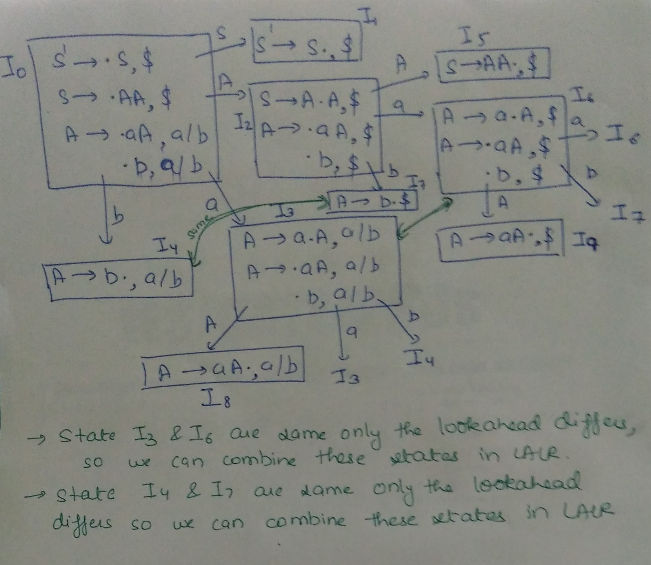 I0
S' → ·S, $
S → ·AA, $
A → ·aA, a/b
·b, a/b
S
I1
S' → S·, $
A
I2
S → A·A, $
A → ·aA, $
·b, $
A
I5
S → AA·, $
a
I6
A → a·A, $
A → ·aA, $
·b, $
a
I6
b
I7
A
A → aA·, $ I9
b
I7
A → b·$
b
I4
A → b·, a/b
same
a
I3
A → a·A, a/b
A → ·aA, a/b
·b, a/b
A
A → aA·, a/b
I8
a
I3
b
I4
→ State I3 & I6 are same only the lookahead differs,
so we can combine these states in LALR.
→ State I4 & I7 are same only the lookahead
differs so we can combine these states in LALR